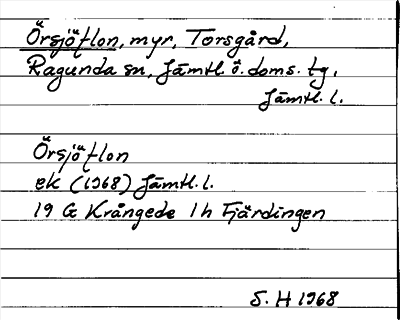 Örsjöflon, myr, Torsgård,
Ragunda sn, Jämtl. ö. doms. tg,
Jämtl. l.
Örsjöflon
ek (1968) Jämtl. l.
19 G Krångede 1 h Fjärdingen
S. H 1968